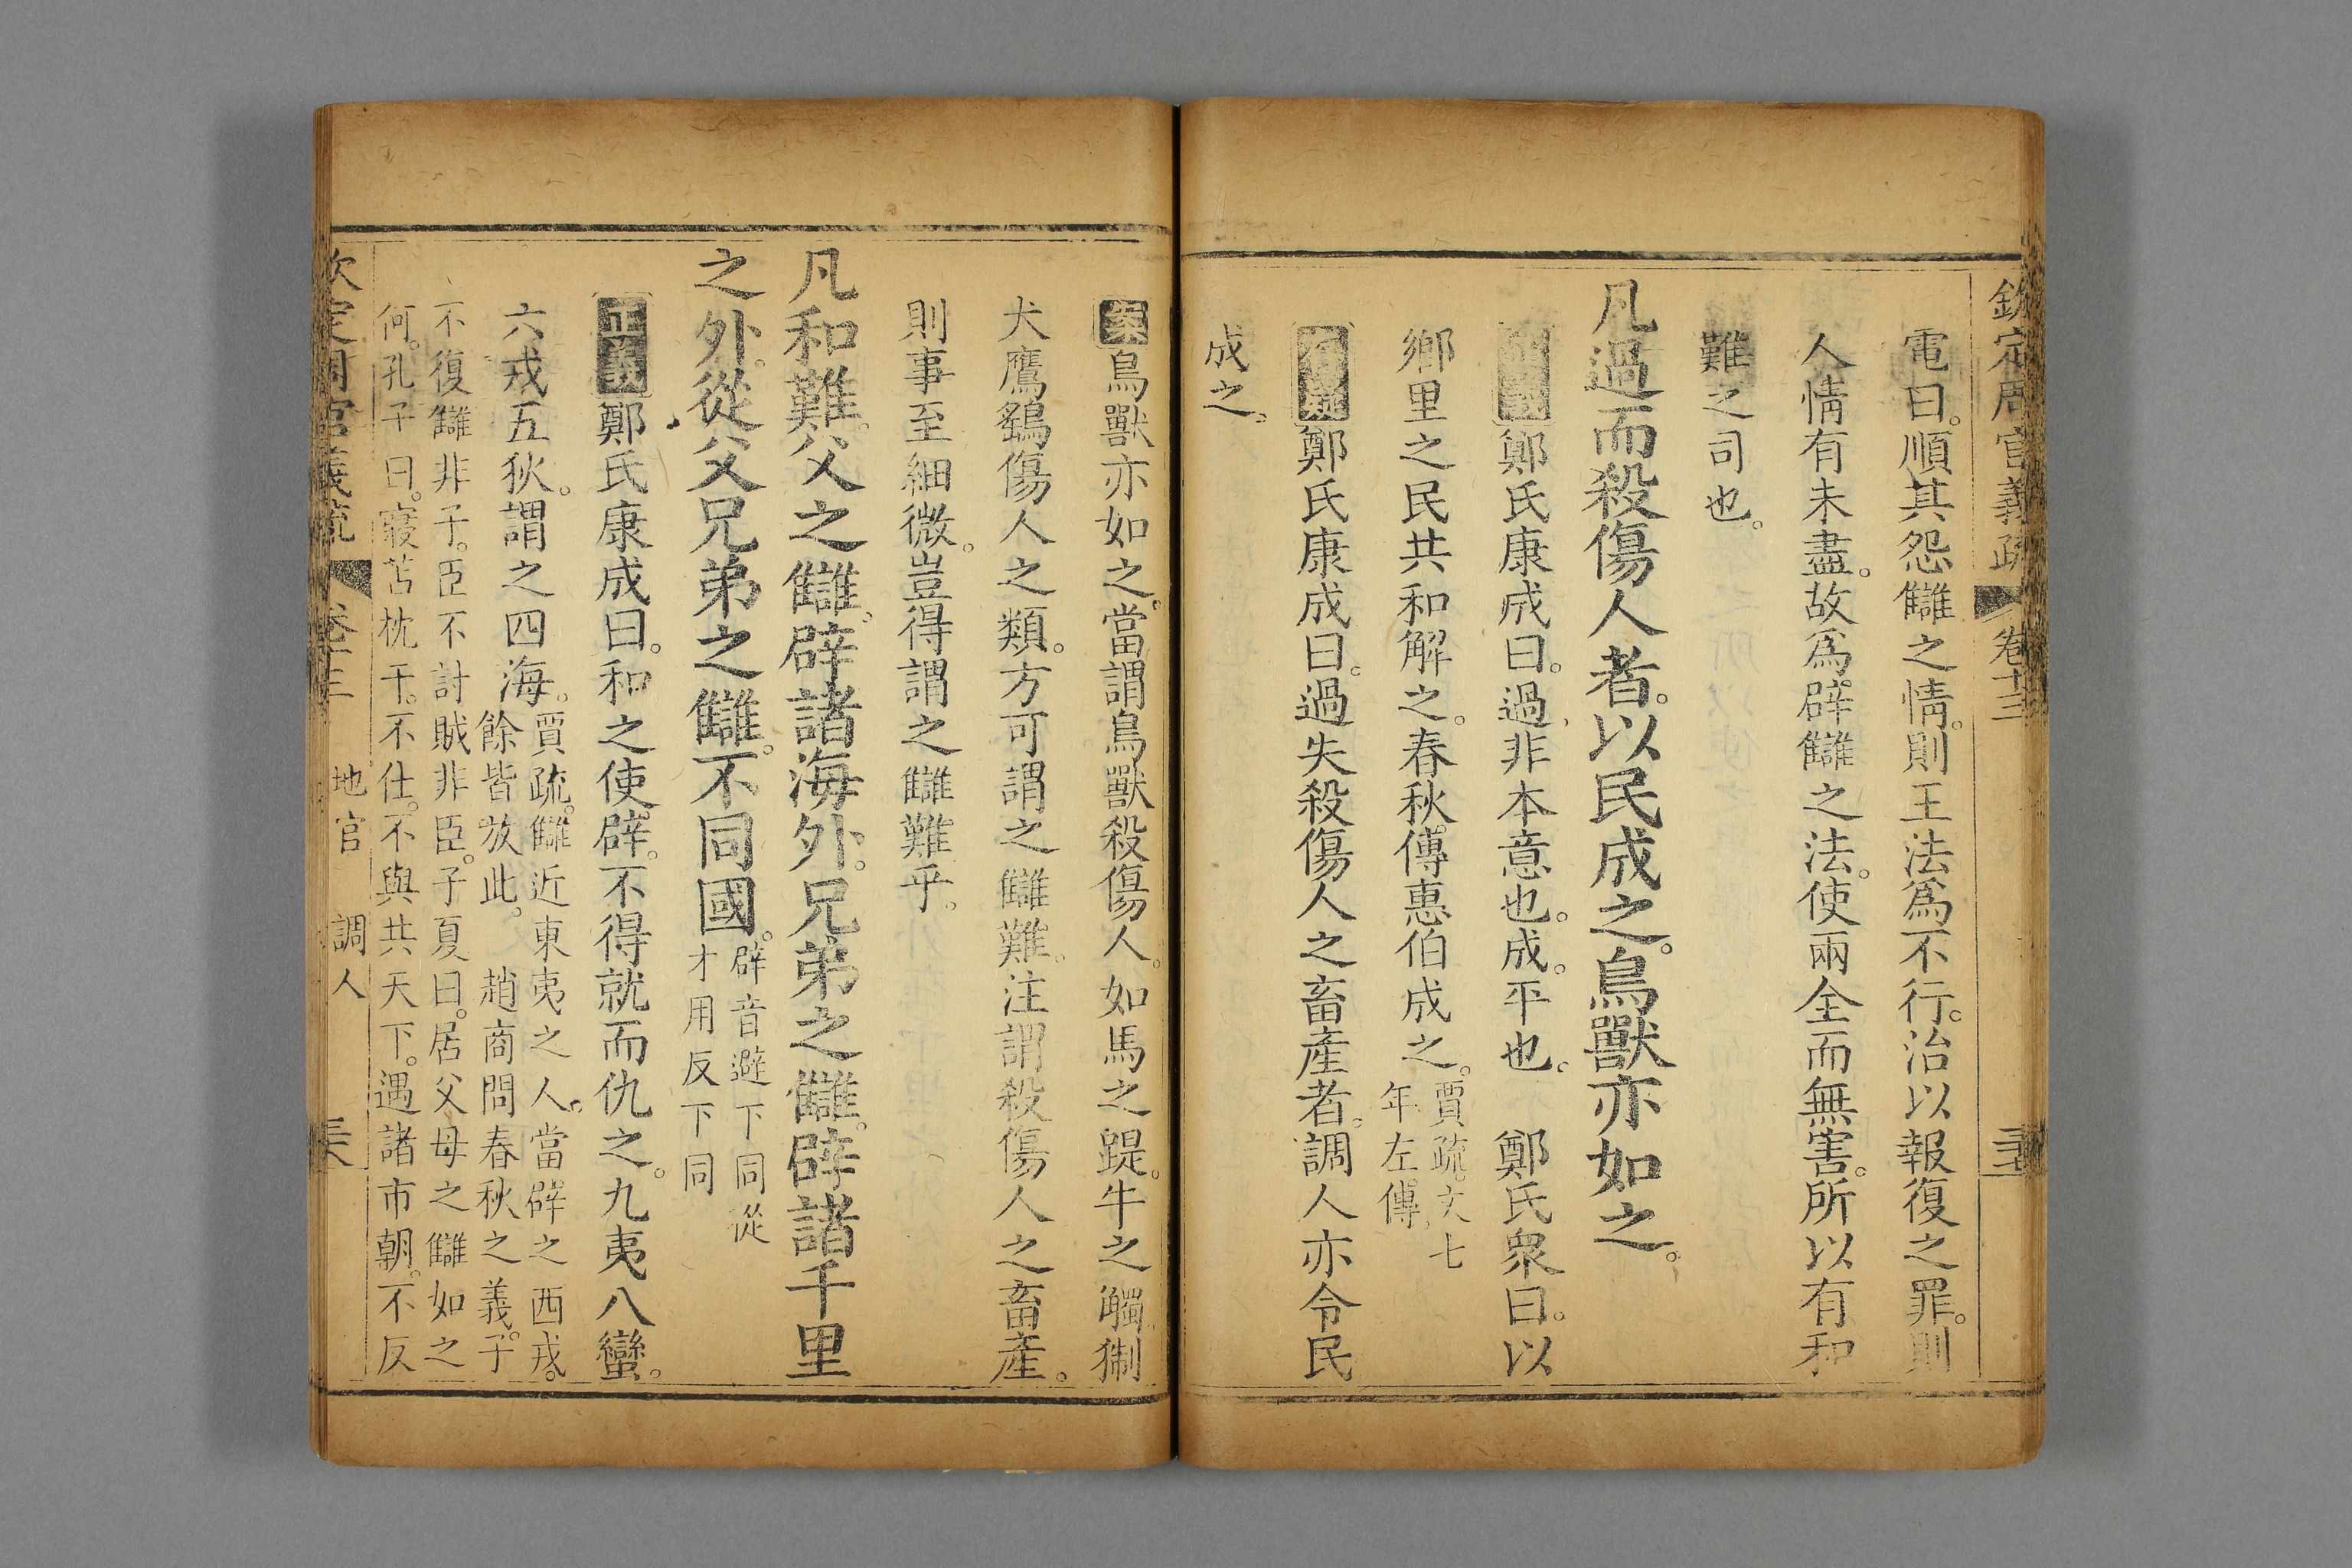 欽定周官義疏 卷十三 三十七
電曰。順其怨讎之情。則王法爲不行。治以報復之罪。則
人情有未盡。故爲辟讎之法。使兩全而無害。所以有和
難之司也。
凡過而殺傷人者。以民成之。鳥獸亦如之。
鄭氏康成曰。過。非本意也。成。平也。 鄭氏衆曰。以
鄉里之民共和解之。春秋傳惠伯成之。賈疏。文七
年左傳。
存疑鄭氏康成曰。過失殺傷人之畜產者。調人亦令民
成之。
案鳥獸亦如之。當謂鳥獸殺傷人。如馬之踶。牛之觸。猘
犬鷹鷂傷人之類。方可謂之讎難。注謂殺傷人之畜產。
則事至細微。豈得謂之讎難乎。
凡和難。父之讎。辟諸海外。兄弟之讎。辟諸千里
之外。從父兄弟之讎。不同國。辟音避下同從
才用反下同
正義鄭氏康成曰。和之使辟。不得就而仇之。九夷八蠻。
六戎五狄。謂之四海。賈疏。讎近東夷之人。當辟之西戎。
餘皆放此。 趙商問春秋之義。子
不復讎非子。臣不討賊非臣。子夏曰。居父母之讎如之
何。孔子曰。寢苫枕干。不仕。不與共天下。遇諸市朝。不反
欽定周官義疏 卷十三 地官 調人 三十八